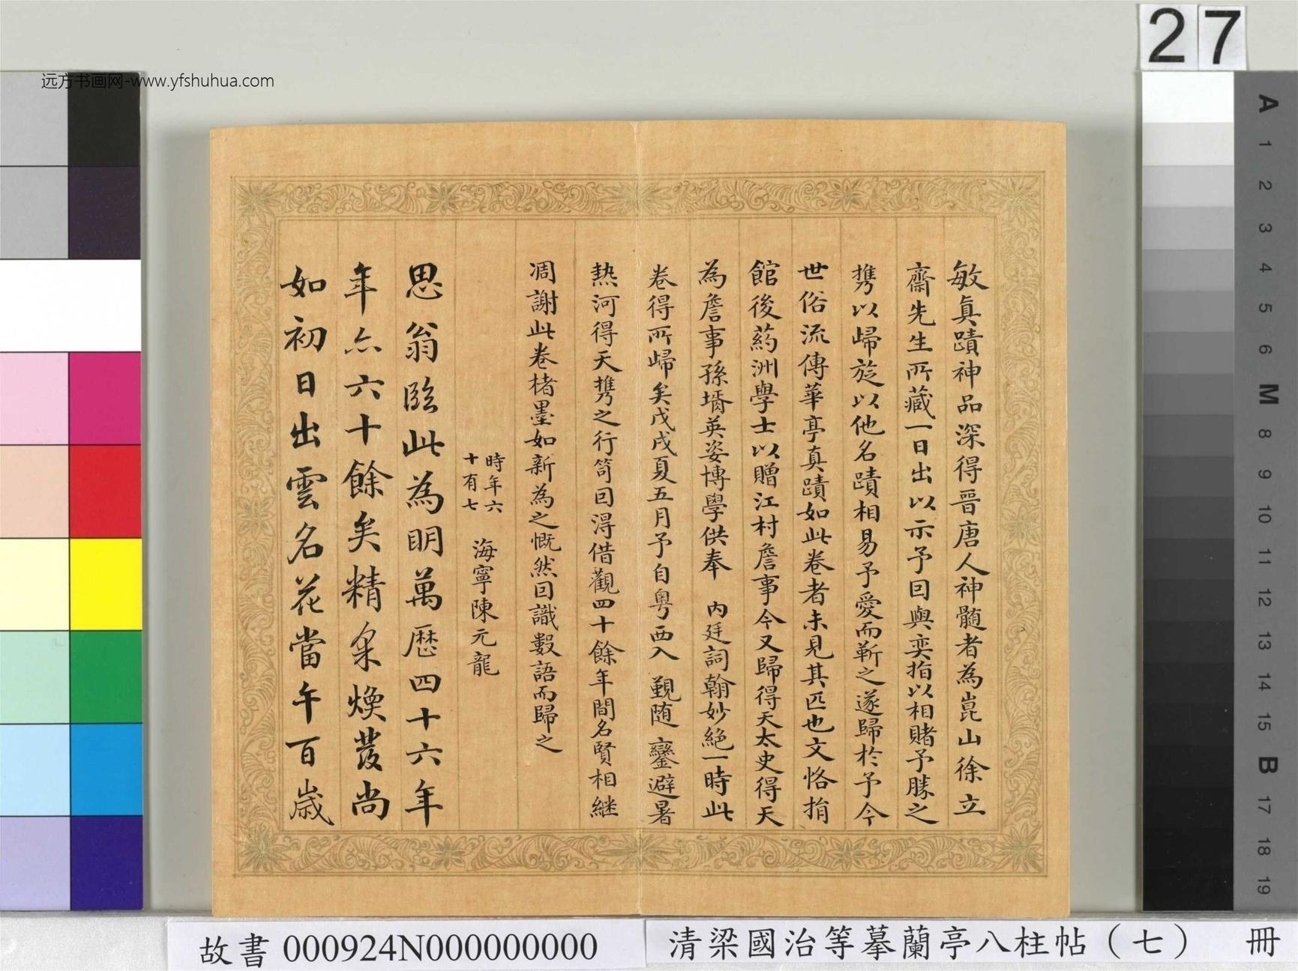 远方书画网-www.yfshuhua.com
27
敏真蹟神品深得晋唐人神髓者為崑山徐立
齋先生所藏一日出以示予囙與奕指以相賭予勝之
携以歸旋以他名蹟相易予愛而靳之遂歸於予今
世俗流傳華亭真蹟如此卷者未見其匹也文恪捐
館後葯洲學士以贈江村詹事今又歸得天太史得天
為詹事孫壻英姿博學供奉 内廷詞翰妙絶一時此
卷得所歸矣戊戌夏五月予自粤西入 覲随 鑾避暑
熱河得天携之行笥囙淂借觀四十餘年間名賢相継
凋謝此卷楮墨如新為之慨然囙識數語而歸之
時年六
十有七
海寧陳元龍
思翁臨此為明萬歷四十六年
年六十餘矣精采煥發尚
如初日出雲名花當午百歲
A
1
2
3
4
5
6
M
8
9
10
11
12
13
14
15
B
17
18
19
故書 000924N000000000
清梁國治等摹蘭亭八柱帖（七） 冊